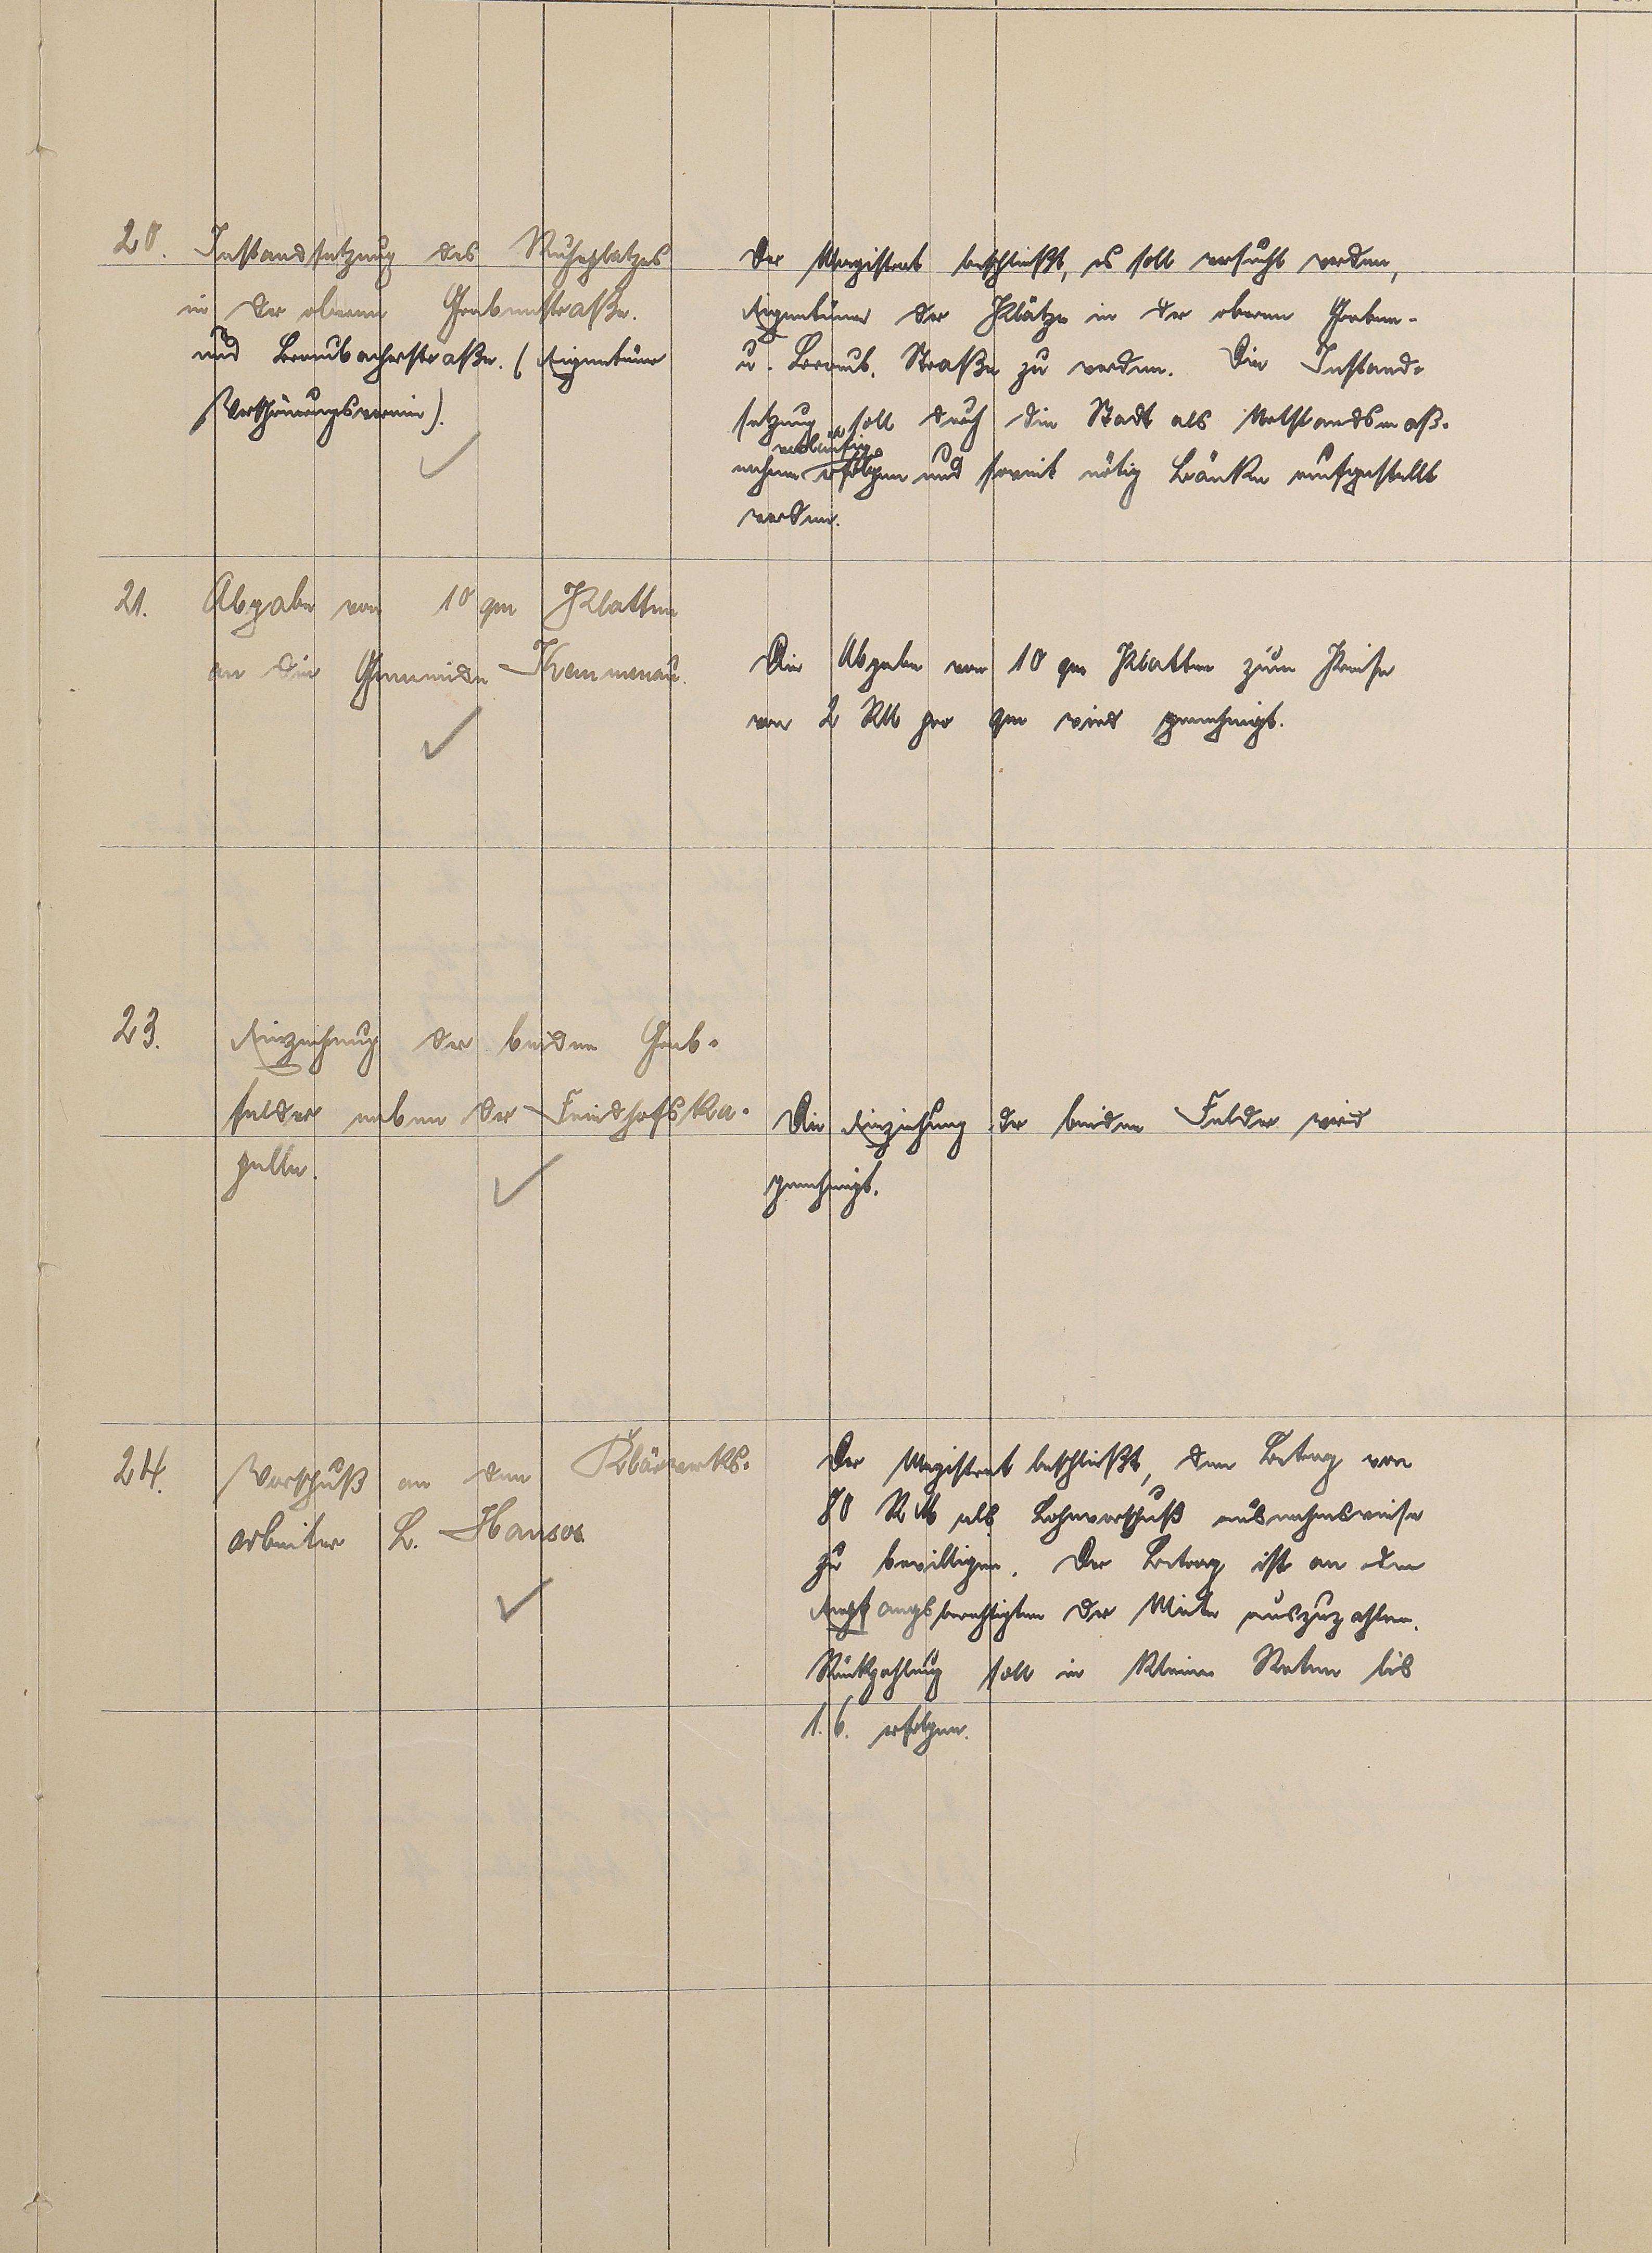 20. Instandsetzung des Ruheplatzes
in der oberen Grabenstraße.
und Braubacherstraße. (Eigentümer
Verschönerungsverein).
Der Magistrat beschließt, es soll versucht werden,
Eigentümer der Plätze in der oberen Graben-
u. Braub. Straße zu werden. Die Instand-
setzung soll durch die Stadt als Notstandsmaß-
vorläufig
nahme erfolgen und soweit nötig Bänke aufgestellt
werden.
21. Abgabe von 10 qm Platten
an die Gemeinde Kemmenau.
Die Abgabe von 10 qm Platten zum Preise
von 2 RM pro qm wird genehmigt.
23. Einziehung der beiden Grab-
felder neben der Friedhofska-
pelle.
Die Einziehung der beiden Felder wird
genehmigt.
24. Vorschuß an den Klärwerks-
arbeiter L.
Der Magistrat beschließt, den Betrag von
80 RM als Lohnvorschuß ausnahmsweise
zu bewilligen. Der Betrag ist an den
Empfangsberechtigten der Miete auszuzahlen.
Rückzahlung soll in kleinen Raten bis
1.6. erfolgen.